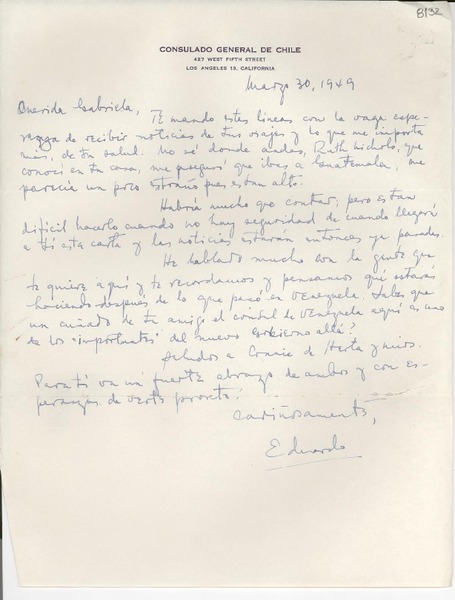 8132
CONSULADO GENERAL DE CHILE
427 WEST FIFTH STREET
LOS ANGELES 13, CALIFORNIA
Marzo 30, 1949
Querida Gabriela, Te mando estas lineas con la vaga espe-
ranza de recibir noticias de tus viajes y lo que me importa
mas, de tu salud. No sé donde andas, Ruth Nichols, que
conocí en tu casa, me aseguró que ibas a Guatemala, me
parecia un poco extraño pues es tan alto.
Habría mucho que contar, pero es tan
difícil hacerlo cuando no hay seguridad de cuando llegará
a tí esta carta y las noticias estarán entonces ya pasadas.
He hablado mucho con la gente que
te quiere aquí y te recordamos y pensamos qué estarás
haciendo despues de lo que pasó en Venezuela. Sabes que
un cuñado de tu amigo el consul de Venezuela aquí es uno
de los "importantes" del nuevo Gobierno allá?
Saludos a Connie de Herta y mios.
Para tí va un fuerte abrazo de ambos y con es-
peranzas de verte pronto!
Cariñosamente,
Eduardo